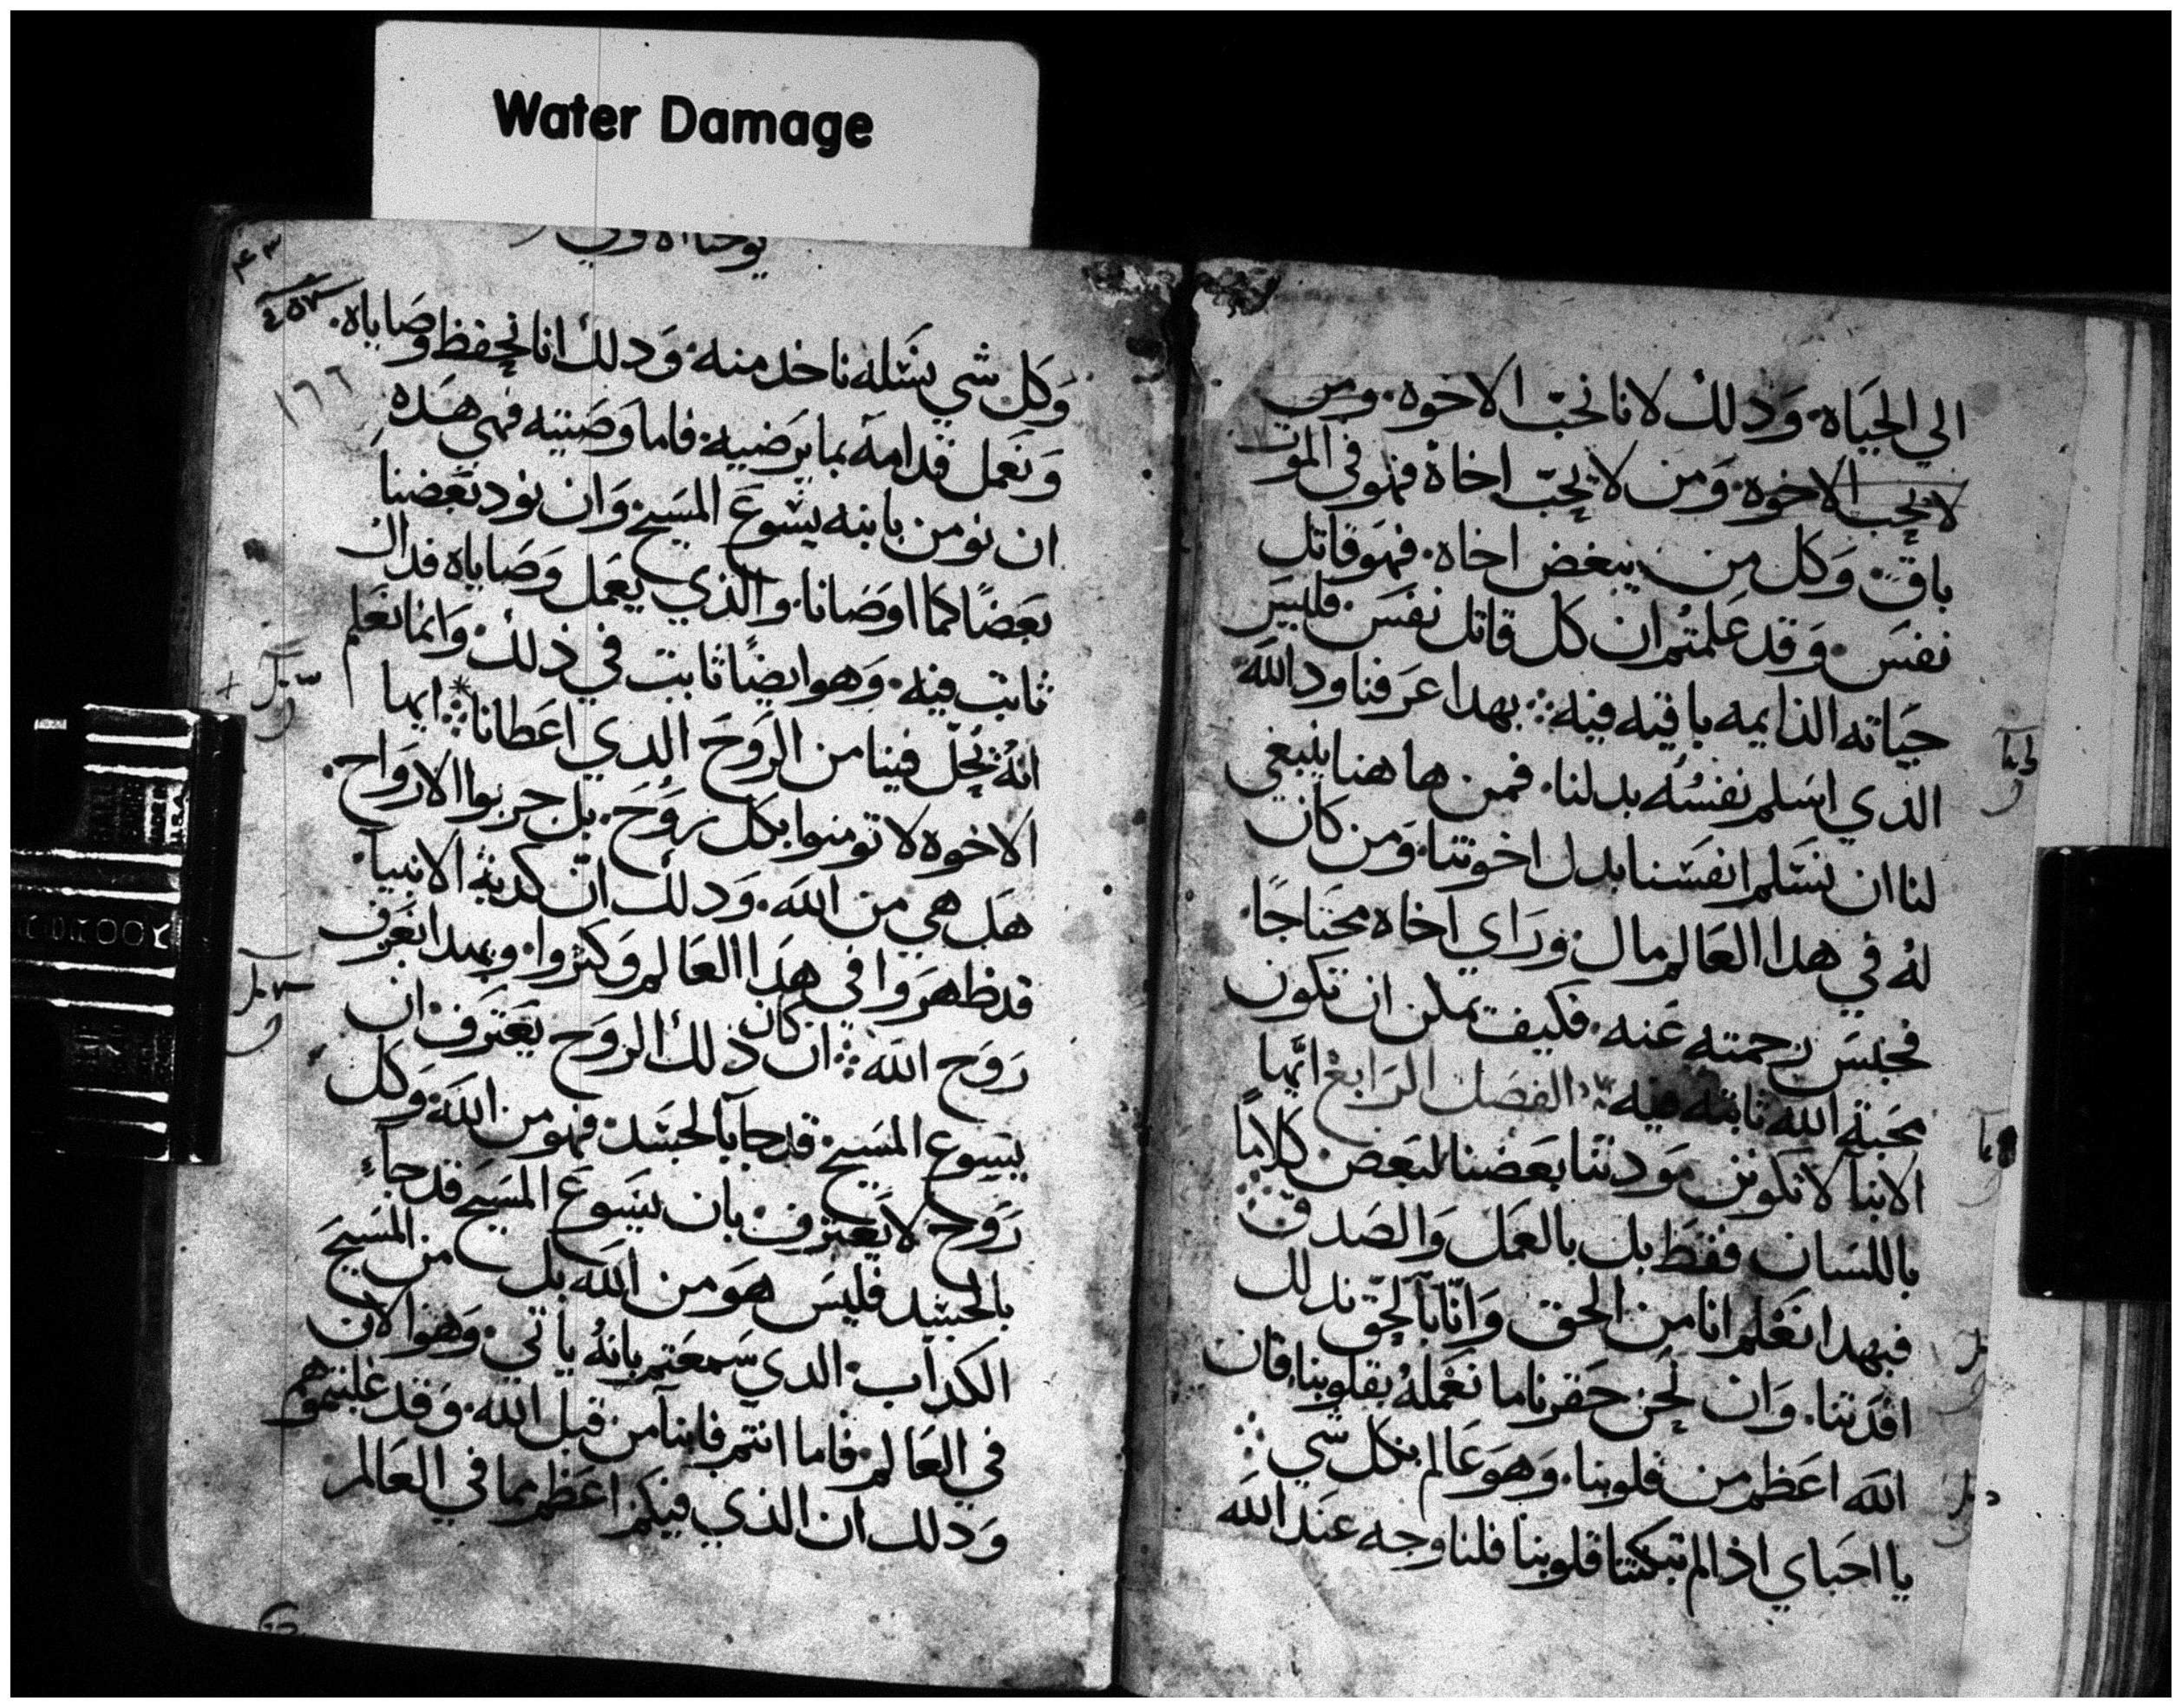 Water Damage
الي الحياه. وَدلك لانا نحبّ الاخوه. ومن
لا يحب الاخوه. وَمن لا يحبّ اخاه فهو في الموت
باق. وَكل من يبغض اخاه. فهوَ قاتل
نفسَ. وَقد علمتم ان كل قاتل نفسَ. فليسَ
حيَاته الدايمه باقيه فيه. بهدا عرَفنا ود الله
الدي اسَلم نفسُه بدلنا. فمن هاهنا ينبغي
لنا ان نسَلم انفسَنا بدل اخوتنا. وَمن كان
لهُ في هدا العَالم مال. ورَاي اخاه محتاجًا.
فحبسَ رحمته عَنه. فكيف يمكن ان تكون
محَبة الله ثابته فيه. الفصَل الرَابع ايّها
الابنا لا تكونن موَدتنا بعَضنا لبعَض كلامًا
باللسَان فقط بل بالعَمل وَالصَدق
فبهدا نعَلم انا من الحق وَانّا بالحق ندلك
افدتنا. وَان نحن حَقرنا ما نعَملهُ بقلوبنا. فان
الله اعَظم من قلوبنا. وَهوَ عَالم بكل شي
يا احَباي اذا لم تبكتنا قلوبنا فلنا وجه عند الله
٤٣
١٦٦
وَكل شي نسَله ناخد منه. وَدلك انا نحفظ وصَاياه.
وَنعَمل قدامه بما يرَضيه. فاما وَصَيته فهي هَده
ان نومن بابنه يسَوعَ المسَيح. وَان نود بعَضنا
بعَضًا كما اوصَانا. والذي يعمَل وَصَاياه فداك
ثابت فيه. وَهو ايضًا ثابت في ذلك. وَانما نعَلم
انهُ يحَلّ فينا من الرَوحَ الدي اعَطانا. ايها
الاخوه لا تومنوا بكل روَحَ. بل جربوا الارَوَاح.
هَل هي من الله. وَدلك ان كدبة الانبيا.
قد ظهرَوا في هدَا العَالم وَكثروا. وبهدا نعَرف
رَوَح الله. ان كان ذلك الروَح يَعترَف ان
يسوع المسَيح قد جا بالجسَد. فهو من الله. وَكل
رَوَح لا يَعترف بان يسَوع المسَيح قد جاء
بالجسَد فليسَ هوَ من الله بل من المسَيحَ
الكدَاب. الدي سَمعَتم بانهُ ياتي. وَهو الان
في العَالم. فاما انتم فابنا من قبل الله. وَقد غلبتموهم
وَدلك ان الذي فيكم اعَظم مما في العَالم